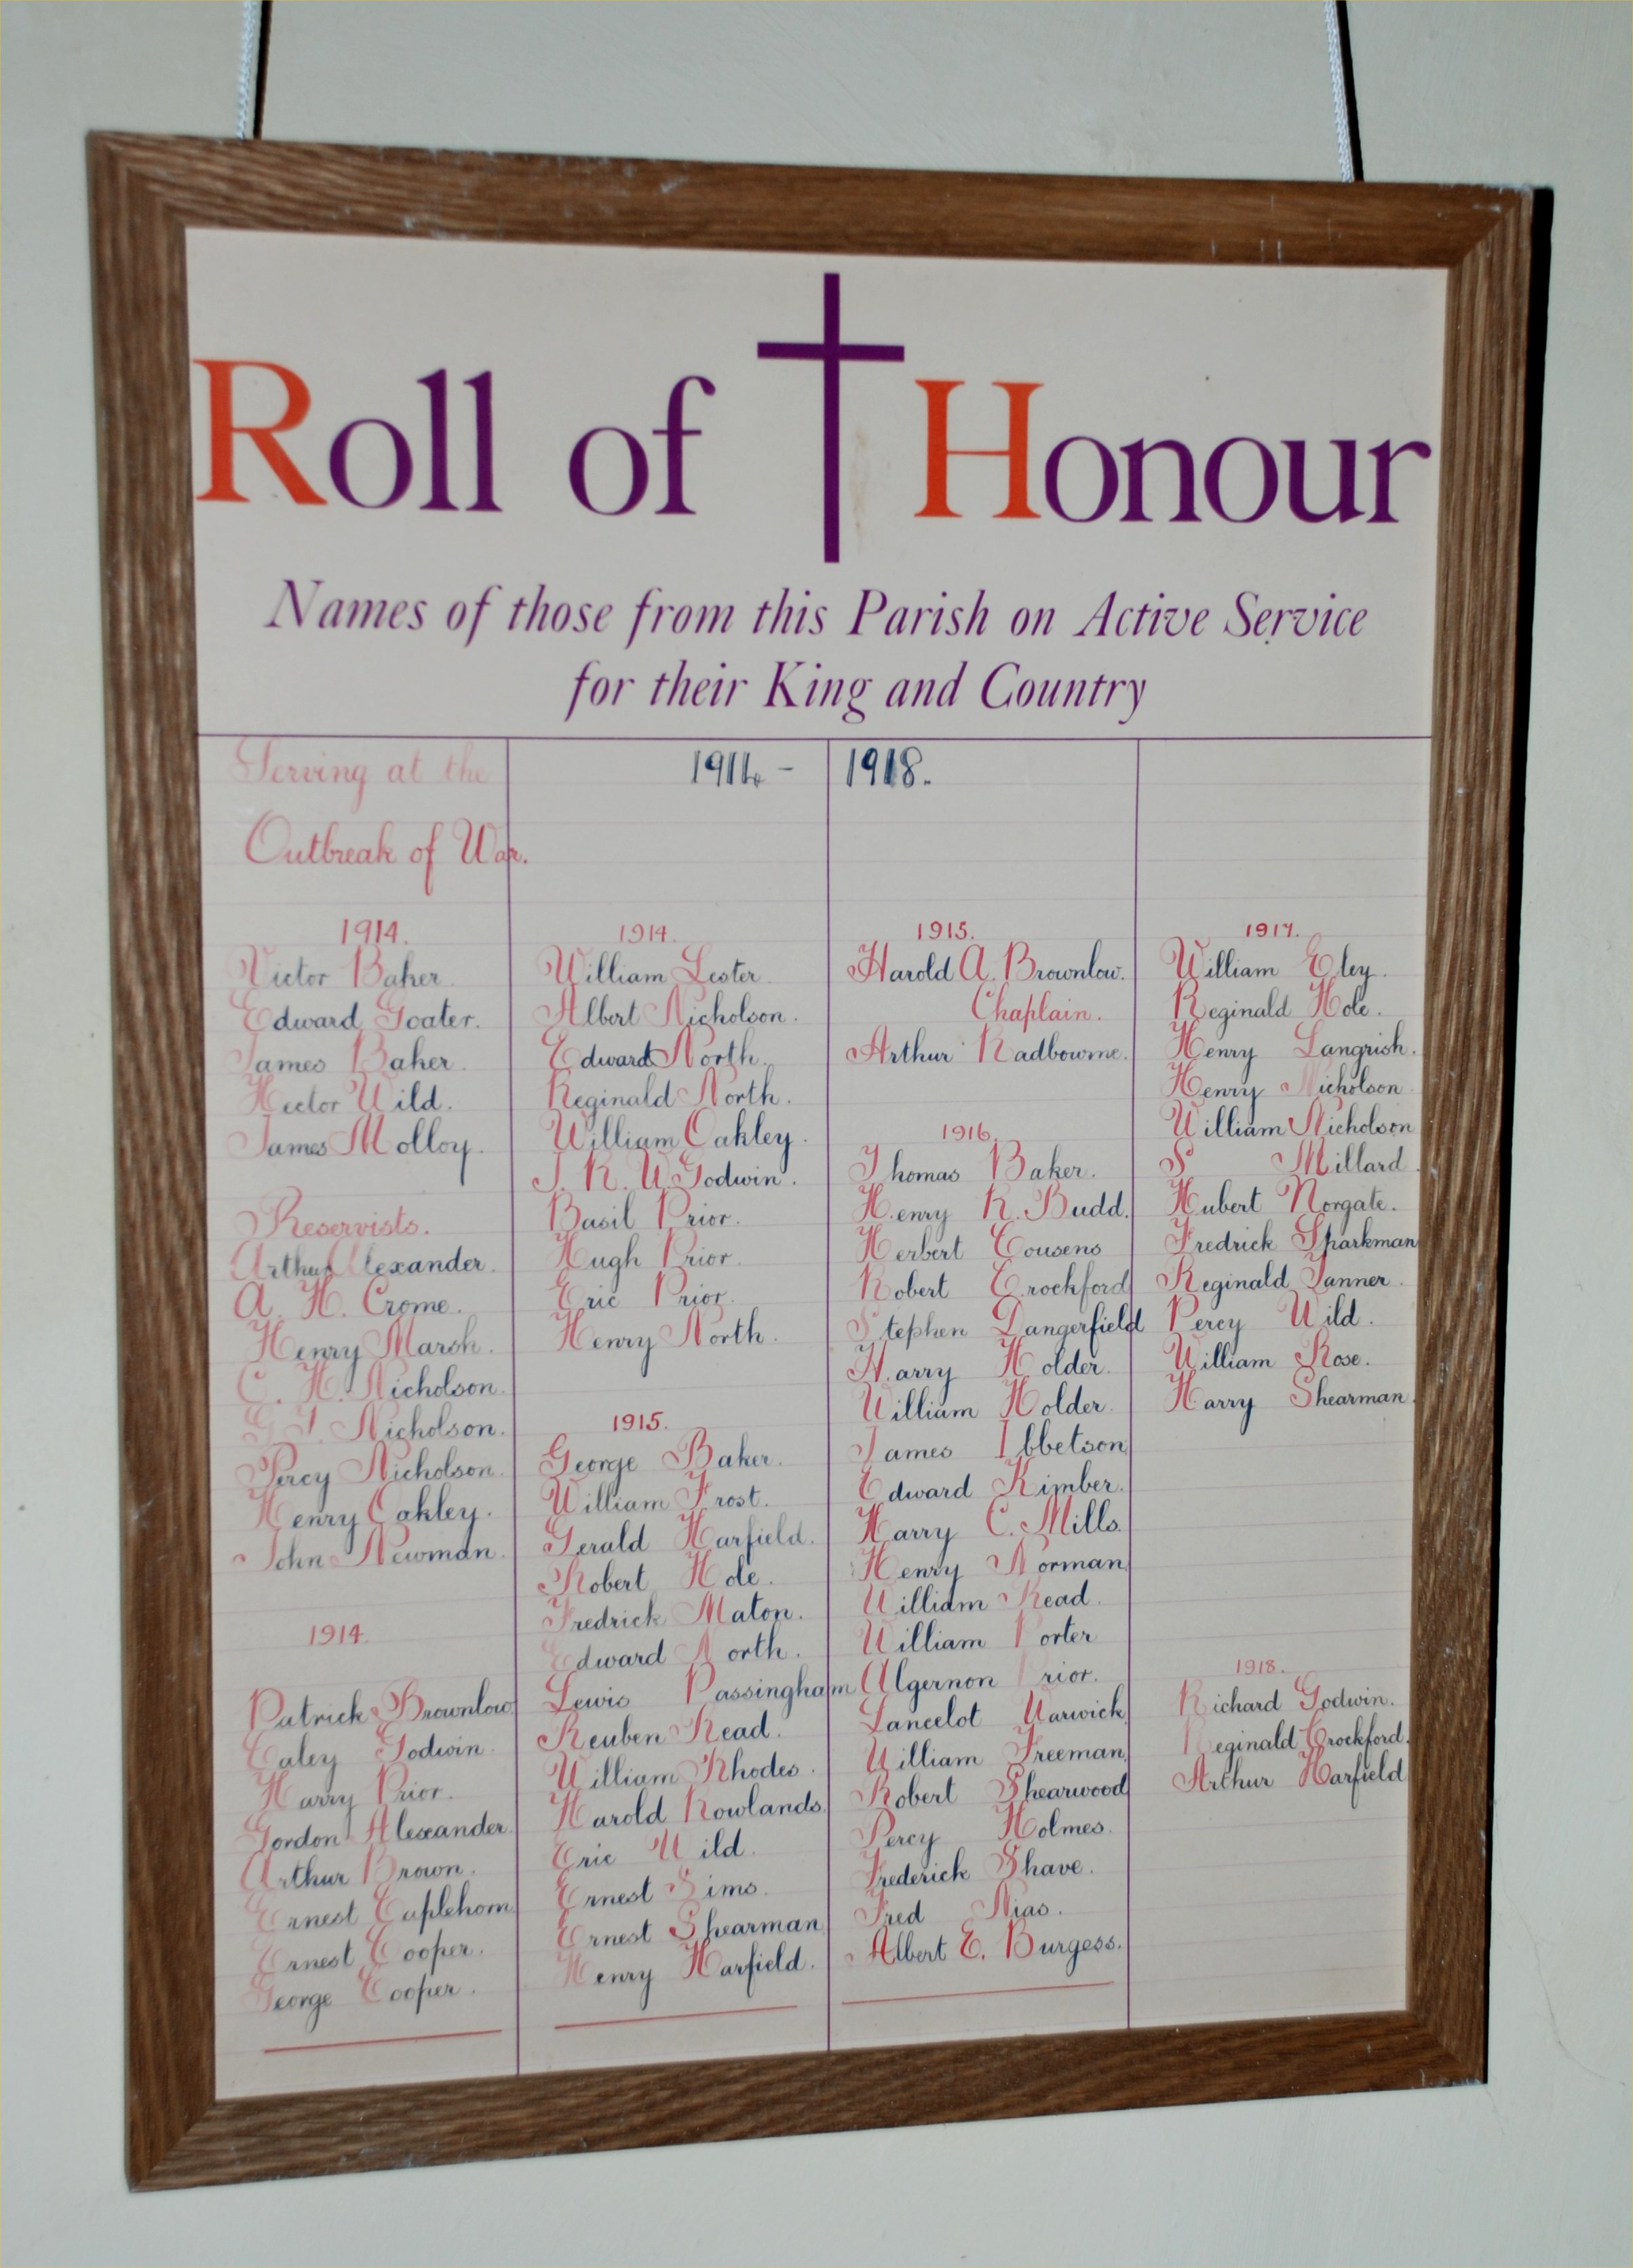 Roll of Honour
Names of those from this Parish on Active Service
for their King and Country
1914 - 1918.
Serving at the
Outbreak of War.
1914.
Victor Baker.
Edward Goater.
James Baker.
Hector Wild.
James Molloy.
Reservists.
Arthur Alexander.
A. H. Crome.
Henry Marsh.
C. H. Nicholson.
G. T. Nicholson.
Percy Nicholson.
Henry Oakley.
John Newman.
1914.
Patrick Brownlow
Caley Godwin.
Harry Prior.
Gordon Alexander.
Arthur Brown.
Ernest Caplehorn
Ernest Cooper.
George Cooper.
1914.
William Lester.
Albert Nicholson.
Edward North.
Reginald North.
William Oakley.
J. R. W. Godwin.
Basil Prior.
Hugh Prior.
Eric Prior.
Henry North.
1915.
George Baker.
William Frost.
Gerald Harfield.
Robert Hole.
Fredrick Maton.
Edward North.
Lewis Passingham
Reuben Read.
William Rhodes.
Harold Rowlands.
Eric Wild.
Ernest Sims.
Ernest Shearman
Henry Harfield.
1915.
Harold A. Brownlow.
Chaplain.
Arthur Radbourne.
1916.
Thomas Baker.
Henry R. Budd.
Herbert Cousens
Robert Crockford
Stephen Dangerfield
Harry Holder.
William Holder.
James Ibbetson
Edward Kimber.
Harry C. Mills.
Henry Norman
William Read.
William Porter
Algernon Prior.
Lancelot Warwick
William Freeman.
Robert Shearwood
Percy Holmes.
Frederick Shave.
Fred Nias.
Albert E. Burgess.
1917.
William Eley.
Reginald Hole.
Henry Langrish.
Henry Nicholson.
William Nicholson
S Millard.
Hubert Norgate.
Fredrick Sparkman
Reginald Tanner.
Percy Wild.
William Rose.
Harry Shearman.
1918.
Richard Godwin.
Reginald Crockford.
Arthur Harfield